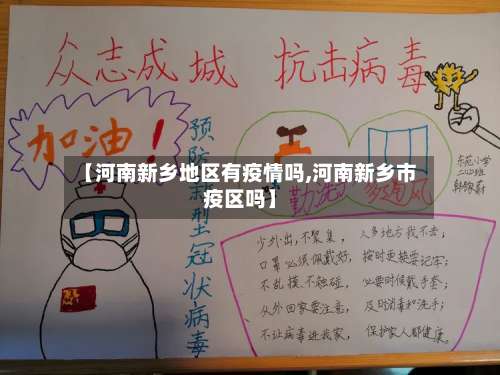 众志成城 抗击病毒
加油！
预防新型冠状病毒
【河南新乡地区有疫情吗,河南新乡市
疫区吗】
勤洗 多通风
东苑小学
二(2)班
少外出,不聚集, 人多地方我不去;
口罩必须佩戴好, 按时更换要记牢;
不乱摸、不触碰, 必要时候戴手套;
从外回家要注意, 及时消毒和洗手;
不让病毒进我家, 保护家人都健康。